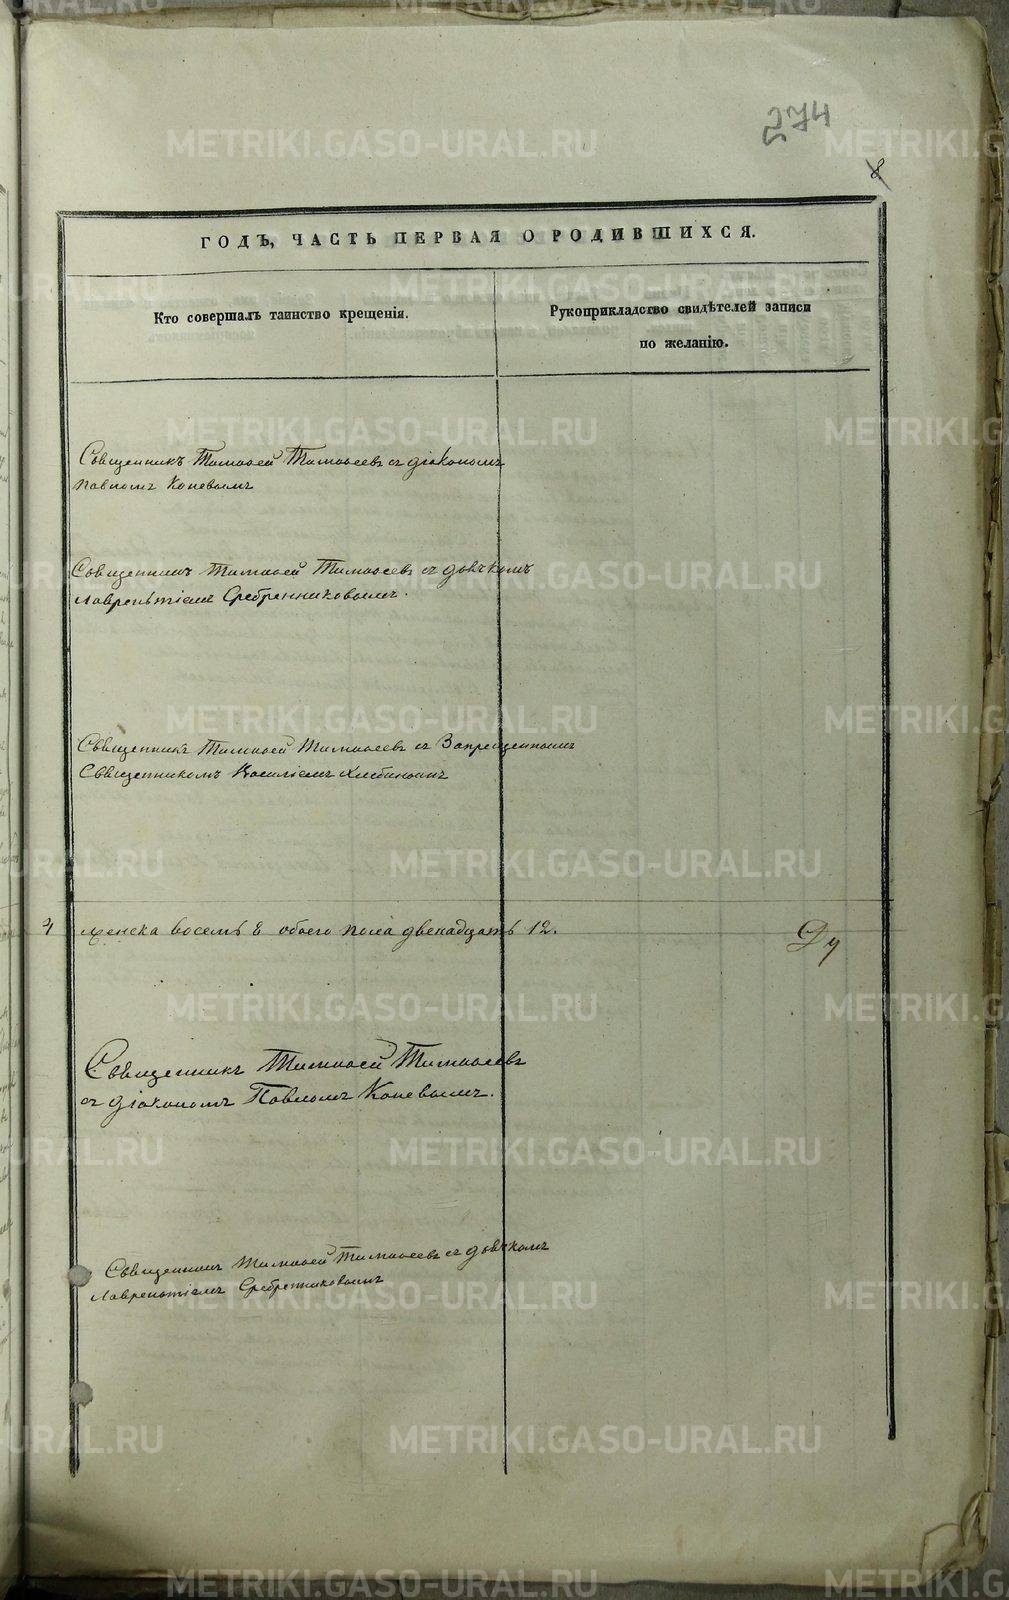 274
8
ГОДЪ, ЧАСТЬ ПЕРВАЯ О РОДИВШИХСЯ.
Кто совершалъ таинство крещенія.
Рукоприкладство свидѣтелей записи
по желанію.
Священникъ Тимоѳей Тимоѳеевъ съ діакономъ
Павломъ Коневымъ
Священникъ Тимоѳей Тимоѳеевъ съ дьячкомъ
Лаврентіемъ Сребренниковымъ.
Священникъ Тимоѳей Тимоѳеевъ съ Запрещеннымъ
Священникомъ Василіемъ
4 женска восемь 8 обоего пола двенадцать 12.
Священникъ Тимоѳей Тимоѳеевъ
съ діакономъ Павломъ Коневымъ.
Священникъ Тимоѳей Тимоѳеевъ съ дьячкомъ
Лаврентіемъ Сребренниковымъ
METRIKI.GASO-URAL.RU